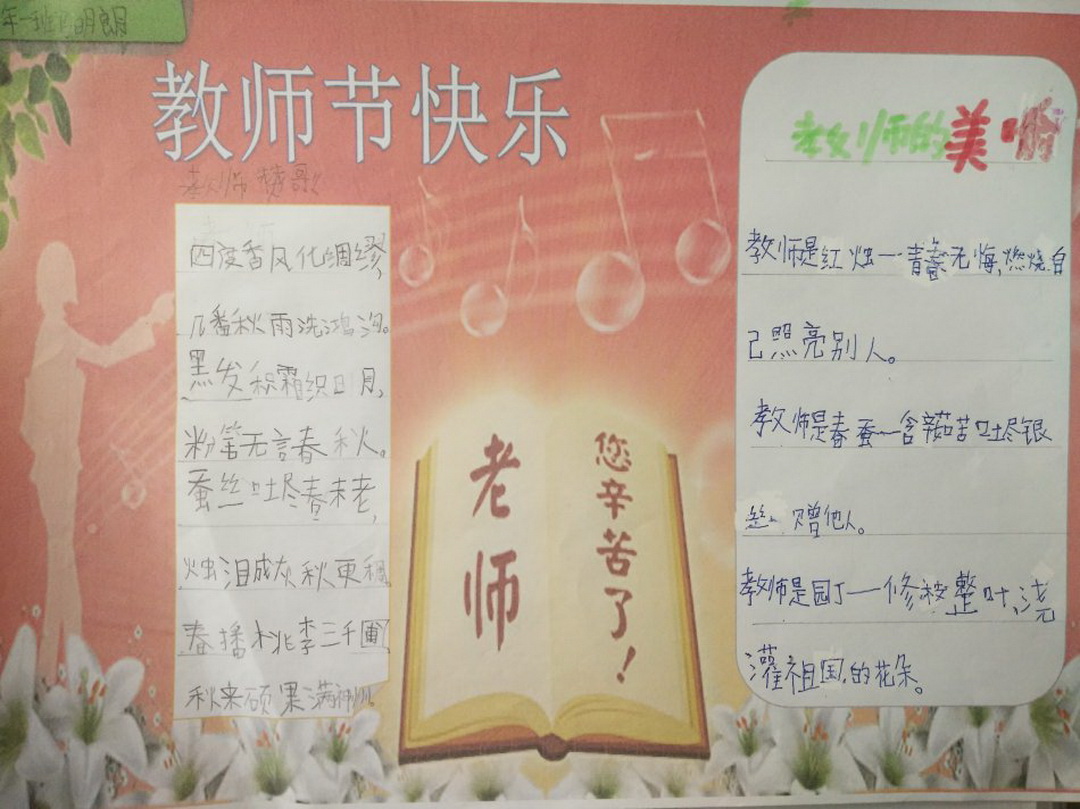 年一班 明朗
教师节快乐
教师赞歌
四度香风化绸缪,
几番秋雨洗鸿沟。
黑发积霜织日月,
粉笔无言春秋。
蚕丝吐尽春未老,
烛泪成灰秋更稠
春播桃李三千圃
秋来硕果满神州。
老师
您辛苦了!
教师的美喻
教师是红烛一青春无悔,燃烧自
己照亮别人。
教师是春蚕一含辛茹苦吐尽银
丝、赠他人。
教师是园丁一修枝整叶,浇
灌祖国的花朵。